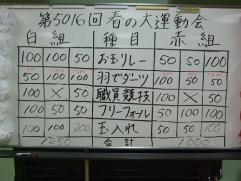 第5016回春の大運動会
白組 種目 赤組
100 100 50 お玉リレー 50 50 100
50 100 100 羽でダーツ 100 50 50
100 × 50 職員競技 100 × 50
50 50 50 フリーフォール 50 100 100
100 100 200 玉入れ 50 50 100
1250 合計 1000